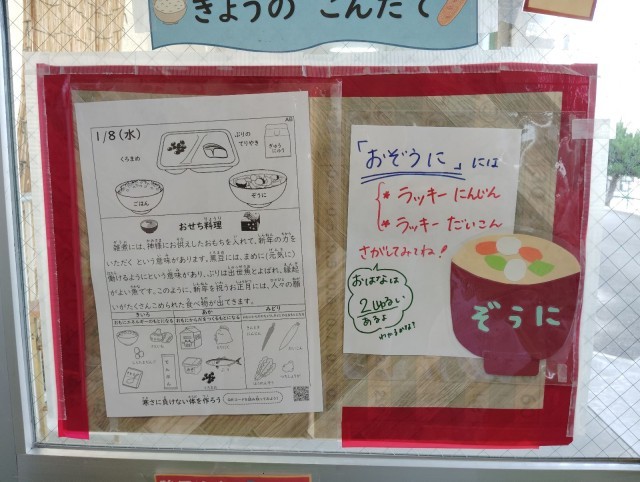 きょうの こんだて
1/8(水)
くろまめ
ぶりの
てりやき
ぎゅう
にゅう
ごはん
ぞうに
おせち料理
雑煮には、神様にお供えしたおもちを入れて、新年の力を
いただく という意味があります。黒豆には、まめに(元気に)
働けるようにという意味があり、ぶりは出世魚とよばれ、縁起
がよい魚です。このように、新年を祝うお正月には、人々の願
いがたくさんこめられた食べ物が出てきます。
きいろ
あか
みどり
おもにエネルギーのもとになる
おもにからだをつくるもとになる
寒さに負けない体を作ろう
「おぞうに」には
* ラッキー にんじん
* ラッキー だいこん
さがしてみてね!
おはなは
2しゅるい
あるよ
わかるかな?
ぞうに